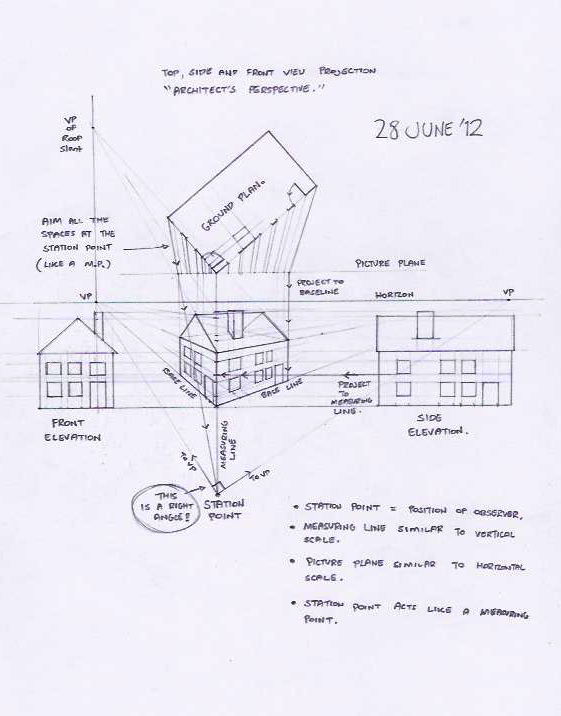 TOP, SIDE AND FRONT VIEW PROJECTION
"ARCHITECT'S PERSPECTIVE."
28 JUNE '12
VP
OF
ROOF
SLANT
GROUND PLAN.
AIM ALL THE
SPACES AT THE
STATION POINT
(LIKE A M.P.)
PICTURE PLANE
PROJECT TO
BASELINE
VP
HORIZON
VP
BASE LINE
BASE LINE
PROJECT
TO
MEASURING
LINE.
FRONT
ELEVATION
SIDE
ELEVATION.
MEASURING
LINE
TO VP
TO VP
THIS
IS A RIGHT
ANGLE!
STATION
POINT
• STATION POINT = POSITION OF OBSERVER.
• MEASURING LINE SIMILAR TO VERTICAL
SCALE.
• PICTURE PLANE SIMILAR TO HORIZONTAL
SCALE.
• STATION POINT ACTS LIKE A MEASURING
POINT.